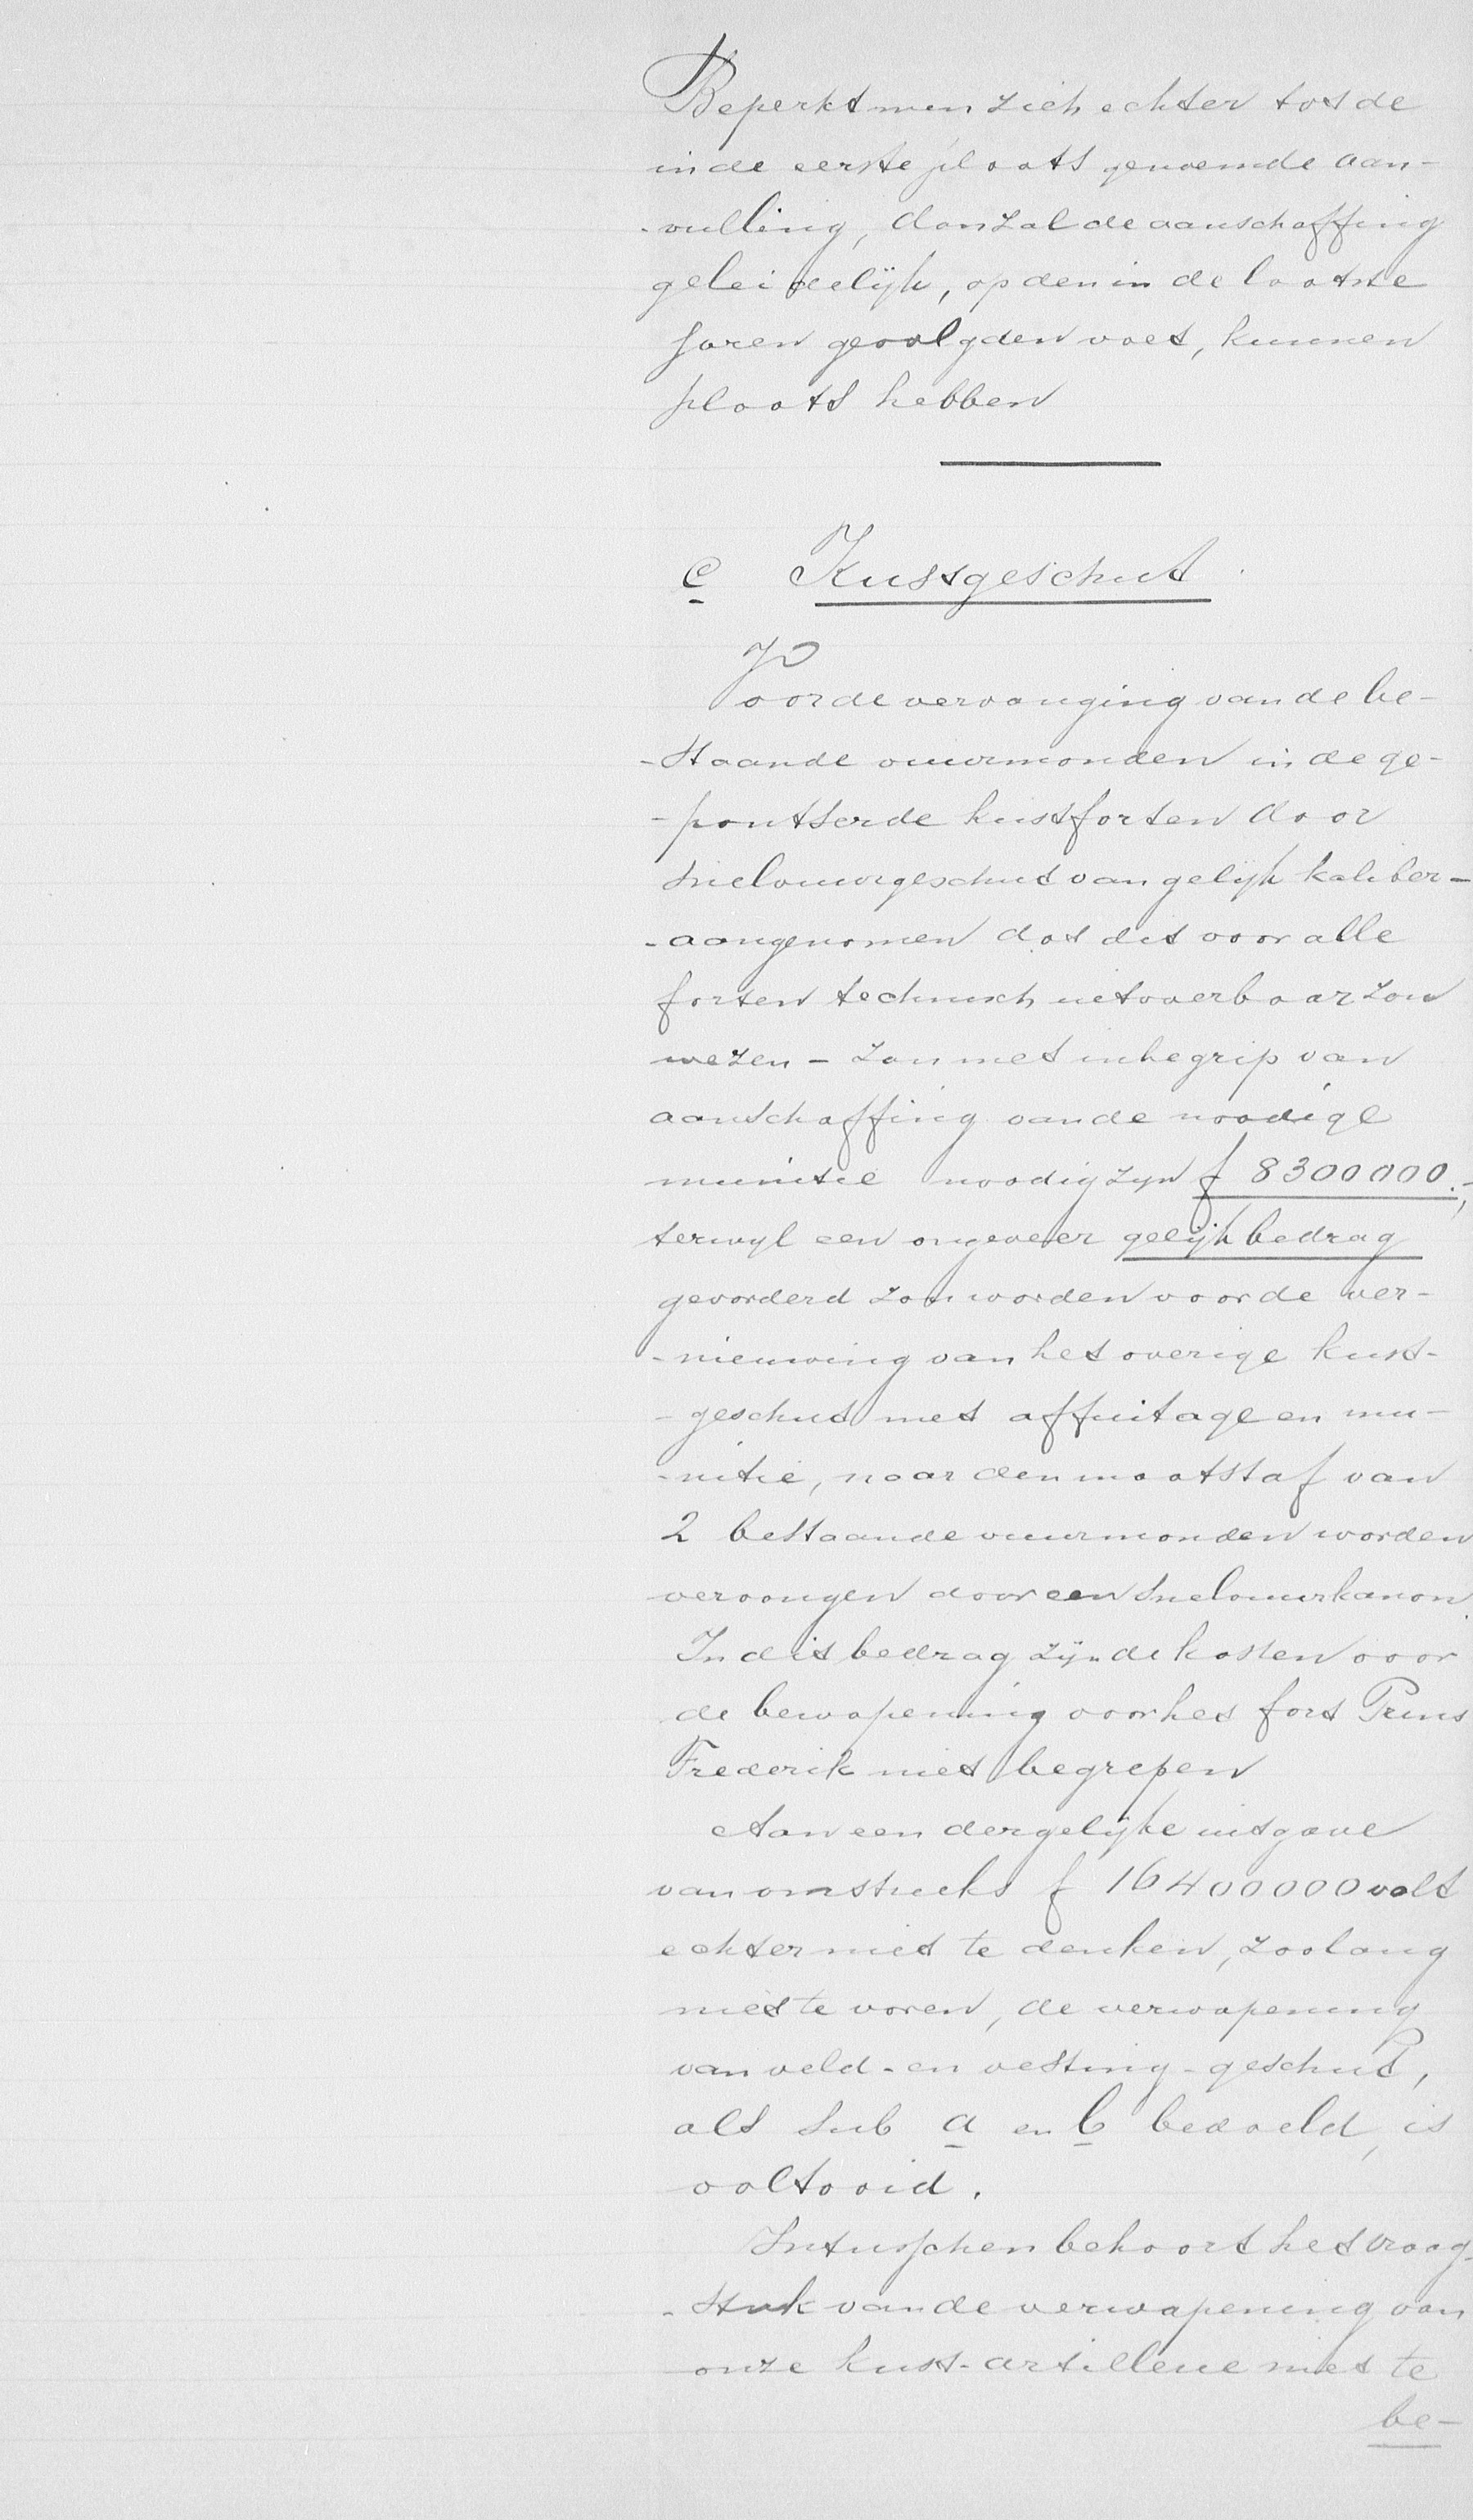 Beperkt men zich echter tot de
in de eerste plaats genoemde aan-
-vulling, dan zal de aanschaffing
geleidelijk, op den in de laatste
jaren gevolgden voet, kunnen
plaats hebben
c Kustgeschut.
Voor de vervanging van de be-
-staande vuurmonden in de ge-
-pantserde kustforten door
snelvuurgeschut van gelijk kaliber -
- aangenomen dat dit voor alle
forten technisch uitvoerbaar zou
wezen - zou met inbegrip van
aanschaffing van de noodige
munitie noodig zijn f 8300000.-,
terwyl een ongeveer gelijk bedrag
gevorderd zou worden voor de ver-
-nieuwing van het overige kust-
-geschut met affuitage en mu-
-nitie, naar den maatstaf van
2 bestaande vuurmonden worden
vervangen door een snelvuurkanon.
In dit bedrag zijn de kosten voor
de bewapening voor het fort Prins
Frederik niet begrepen
Aan een dergelijke uitgave
van omstreeks f 16400000 valt
echter niet te denken, zoolang
niet te voren, de verwapening
van veld- en vesting-geschut,
als sub a en b bedoeld, is
voltooid.
Intusschen behoort het vraag-
-stuk van de verwapening van
onze kust-artillerie niet te
be-